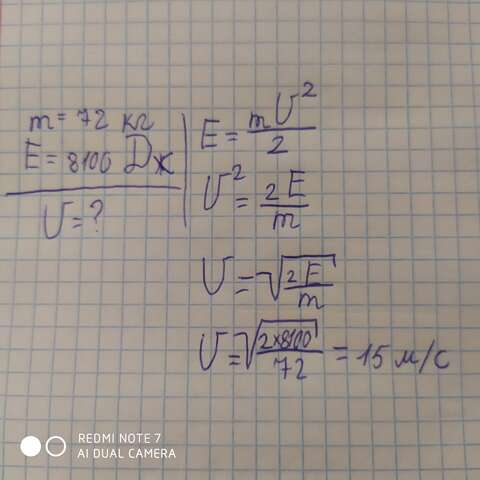 m = 72 кг
E = 8100 Дж
U = ?
E = mU²/2
U² = 2E/m
U = √(2E/m)
U = √(2×8100/72) = 15 м/с
REDMI NOTE 7
AI DUAL CAMERA